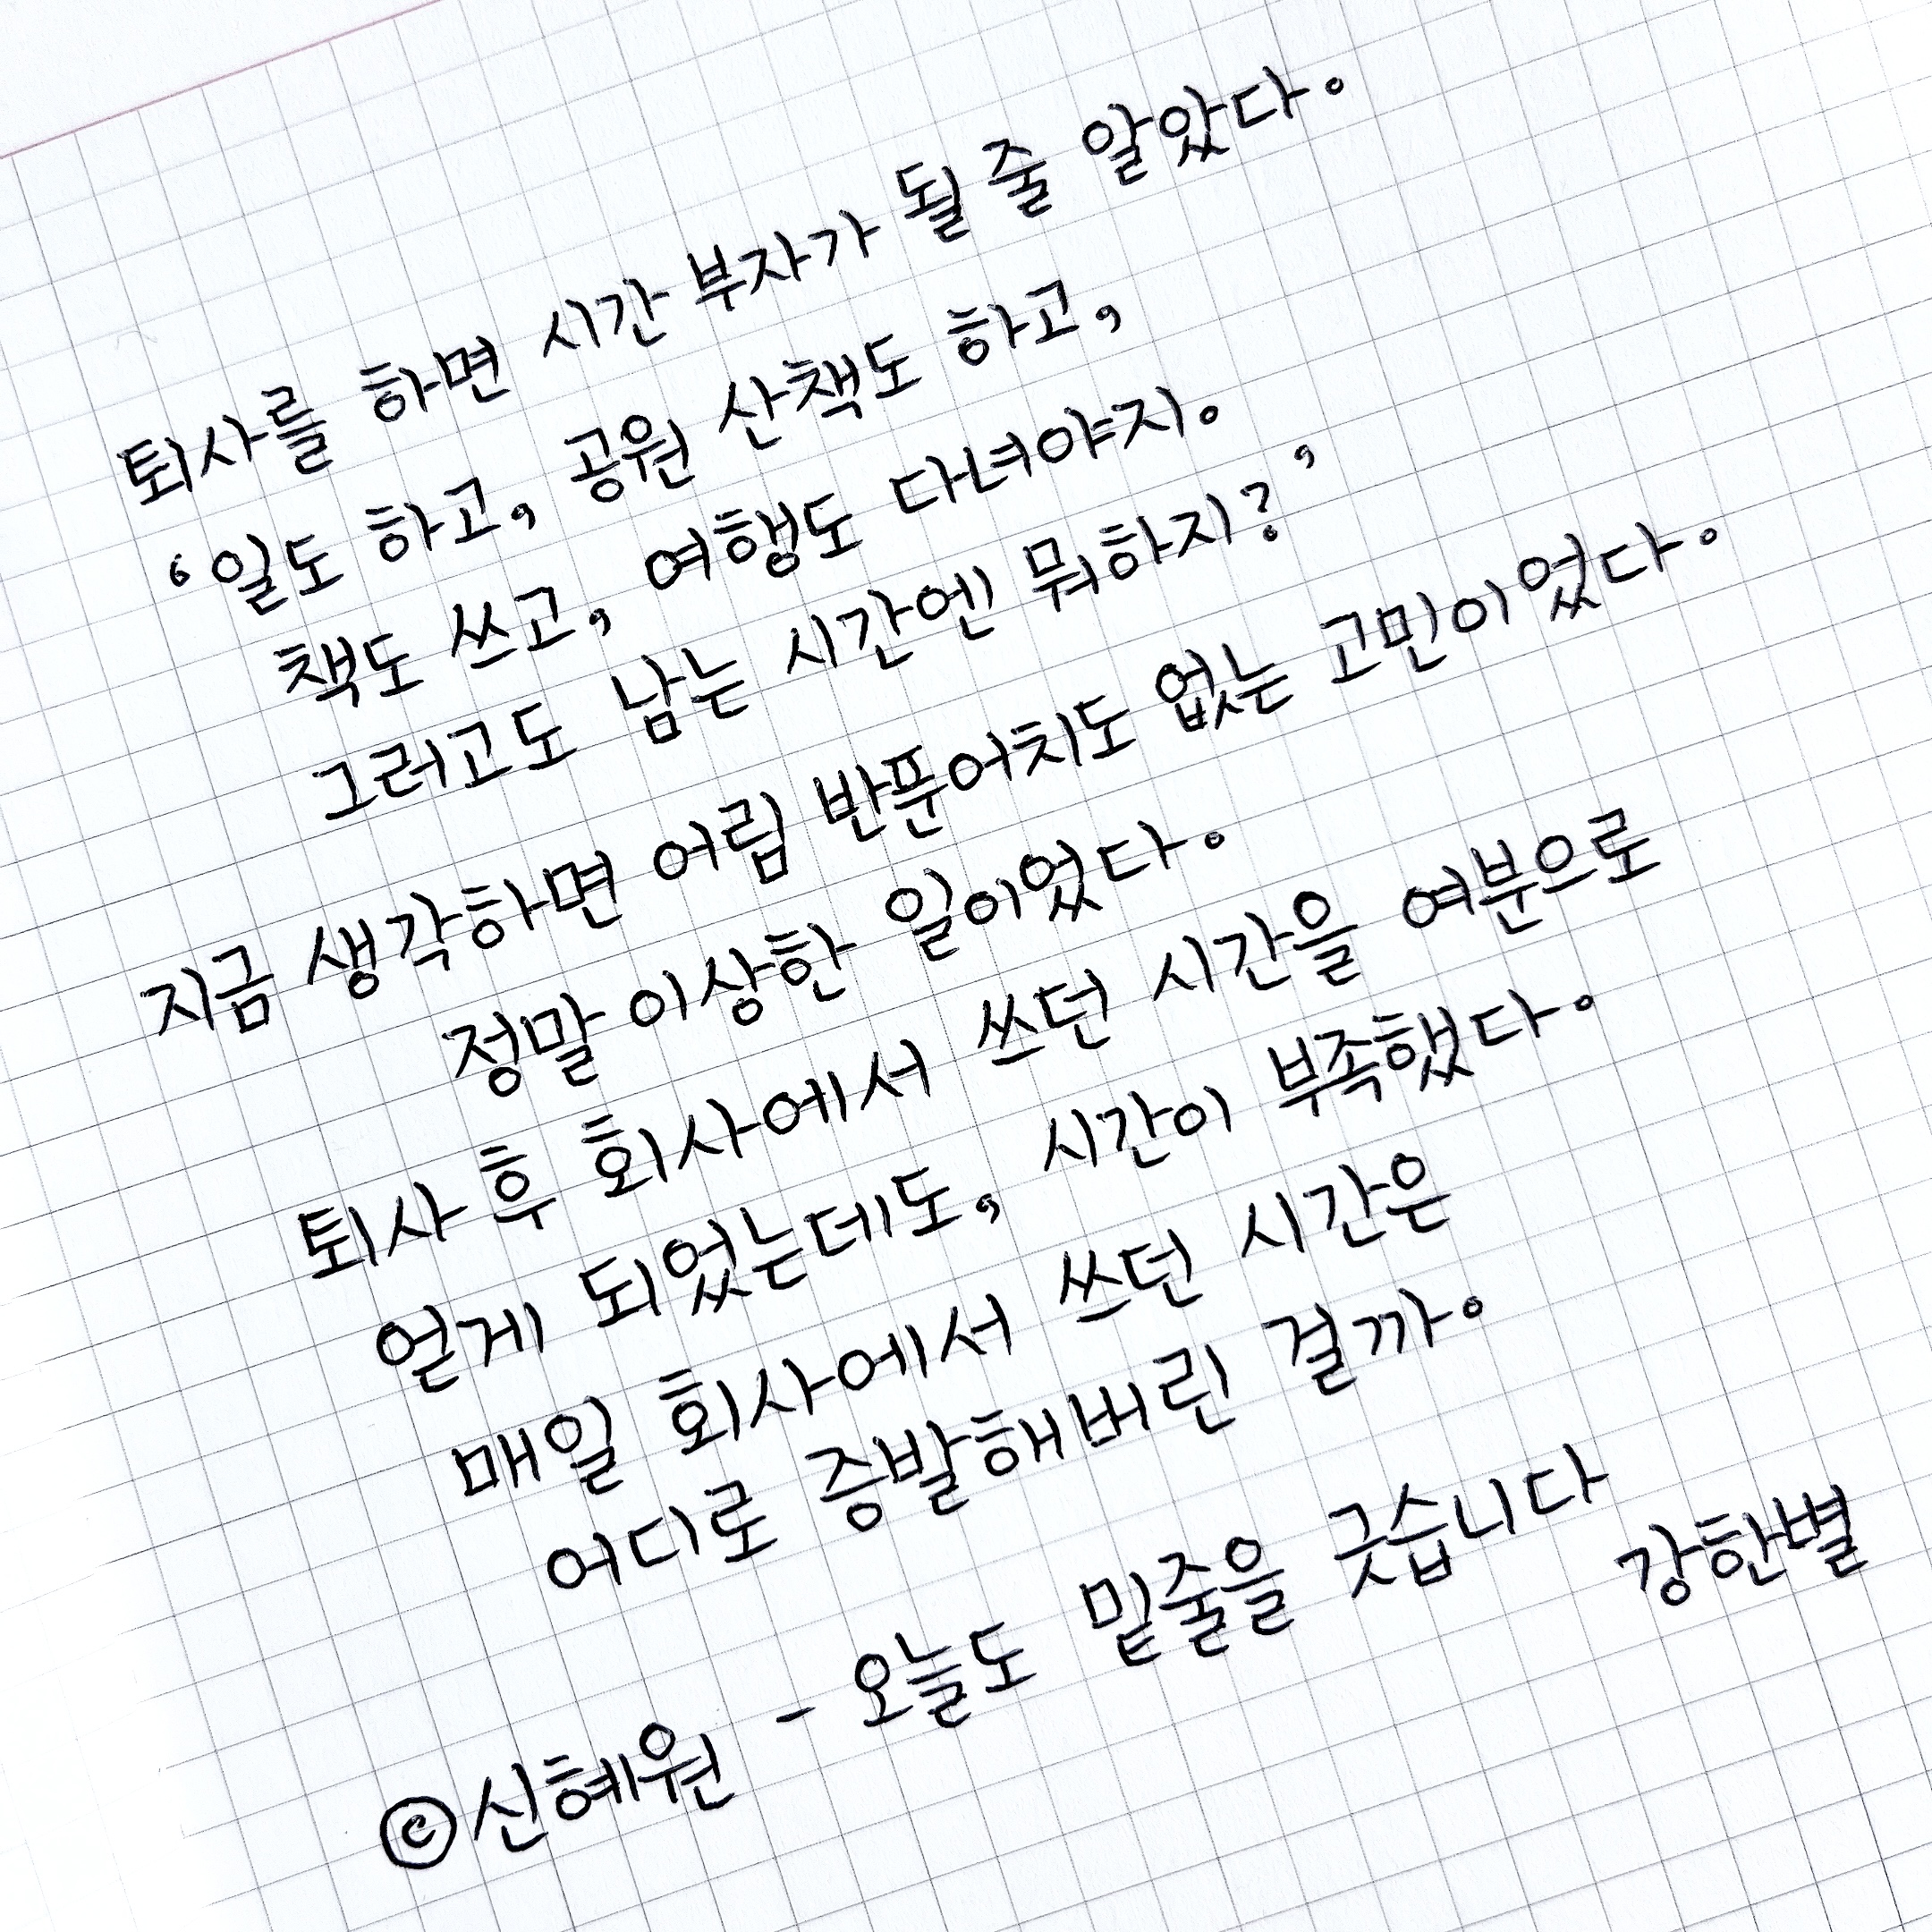 퇴사를 하면 시간 부자가 될 줄 알았다.
'일도 하고, 공원 산책도 하고,
책도 쓰고, 여행도 다녀야지.
그러고도 남는 시간엔 뭐하지?'
지금 생각하면 어림 반푼어치도 없는 고민이었다.
정말 이상한 일이었다.
퇴사 후 회사에서 쓰던 시간을 여분으로
얻게 되었는데도, 시간이 부족했다.
매일 회사에서 쓰던 시간은
어디로 증발해버린 걸까.
©신혜원 - 오늘도 밑줄을 긋습니다
강한별